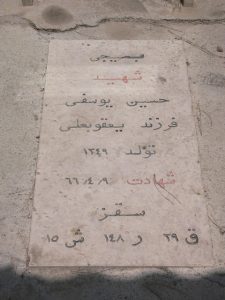 بسیجی
شهید
حسین یوسفی
فرزند یعقوبعلی
تولد ۱۳۴۹
شهادت ۶۶/۴/۹
سقز
ق ۲۹ ر ۱۴۸ ش ۱۵